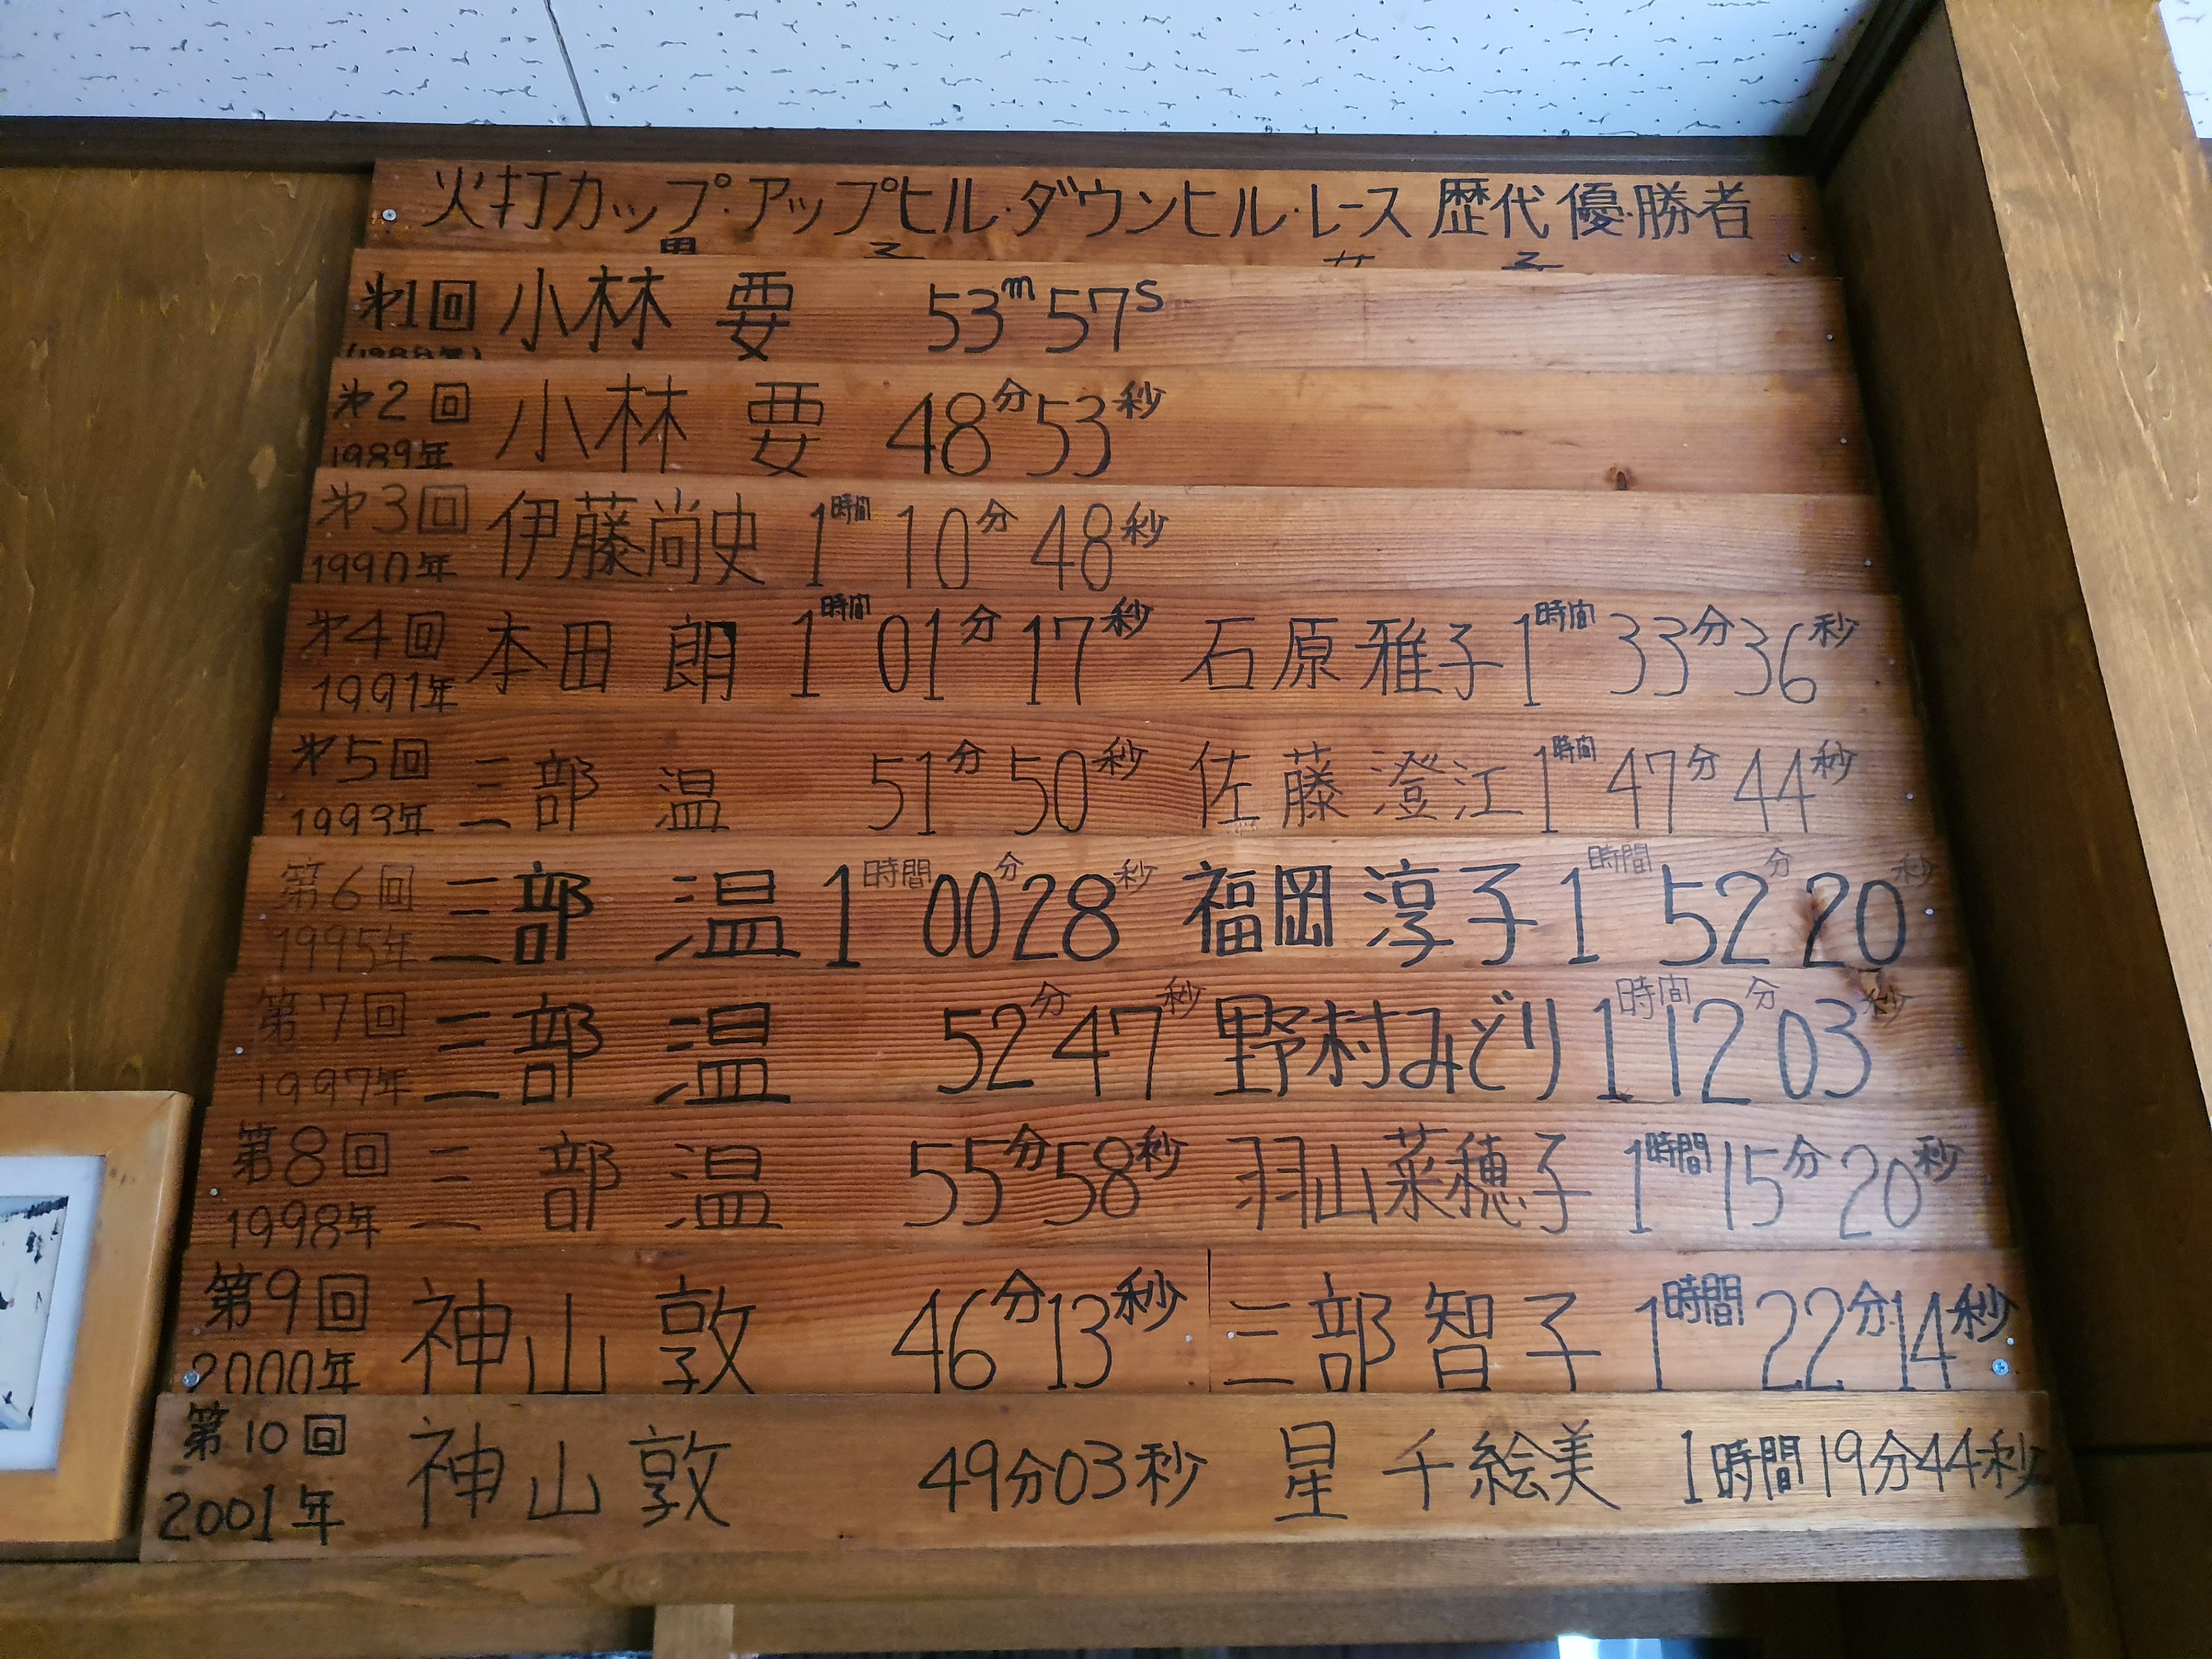 火打カップ・アップヒル・ダウンヒル・レース 歴代優勝者
男 子 女 子
㐧1回 小林 要 53m57s
(1988年)
㐧2回 小林 要 48分53秒
1989年
㐧3回 伊藤尚史 1時間10分48秒
1990年
㐧4回 本田 朗 1時間01分17秒 石原雅子 1時間33分36秒
1991年
㐧5回 三部 温 51分50秒 佐藤澄江 1時間47分44秒
1993年
第6回 三部 温 1時間00分28秒 福岡淳子 1時間52分20秒
1995年
第7回 三部 温 52分47秒 野村みどり 1時間12分03秒
1997年
第8回 三部 温 55分58秒 羽山菜穂子 1時間15分20秒
1998年
第9回 神山 敦 46分13秒 三部智子 1時間22分14秒
2000年
第10回 神山 敦 49分03秒 星 千絵美 1時間19分44秒
2001年